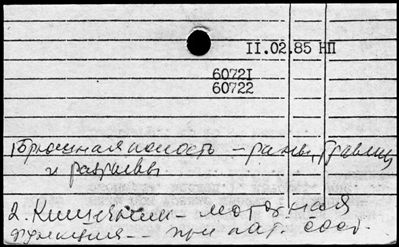 II.02.85 НП
60721
60722
1 Брюшная полость – раны,
и разрывы
2. Кишечник – моторная
функция – при пат. сост.